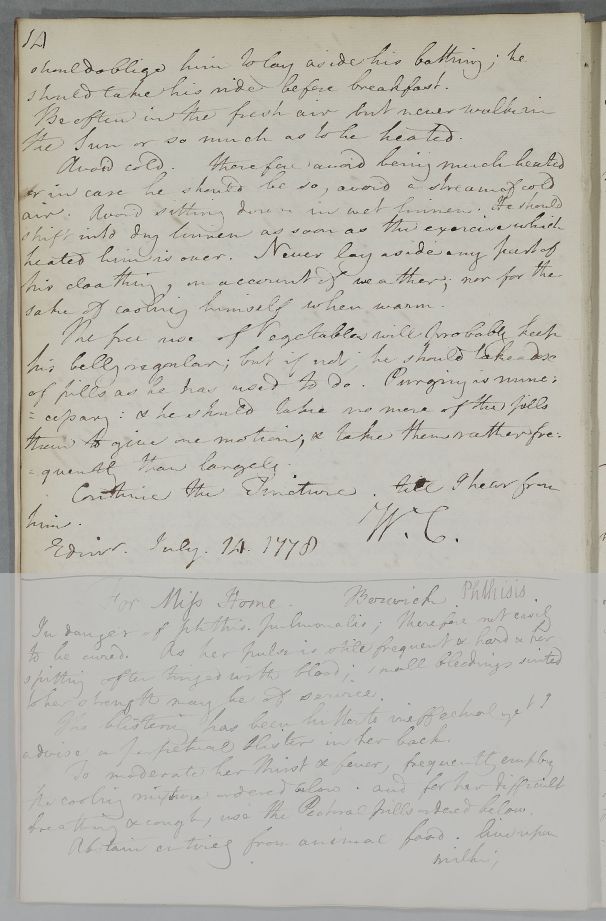 14
should oblige him to lay aside his bathing; he
should take his ride before breakfast.
Be often in the fresh air but never walk in
the Sun or so much as to be heated.
Avoid cold. therefore avoid being much heated
or in case he should be so, avoid a stream of cold
air. Avoid sitting down in wet linnen. He should
shift into dry linnen as soon as the exercise which
heated him is over. Never lay aside any part of
his cloathing, on account of weather; nor for the
sake of cooling himself when warm.
The free use of Vegetables will probably keep
his belly regular; but if not, he should take a dose
of pills as he has used to do. Purging is unne:
=cessary: & he should take no more of the pills
than to give one motion, & take them rather fre:
=quently than largely.
Continue the Tincture. till I hear from
him.
W. C.
Edinr. July. 14. 1778
For Miss Home. Berwick Phthisis.
In danger of phthis. pulmonalis; therefore not easily
to be cured. As her pulse is still frequent & hard & her
spitting often tinged with blood, small bleedings suited
to her strength may be of service.
The blistering has been hitherto ineffectual yet I
advise a perpetual blister in her back.
To moderate her thirst & fever, frequently employ
the cooling mixture ordered below. and for her difficult
breathing & cough, use the Pectoral pills ordered below.
Abstain entirely from animal food. live upon
milk;